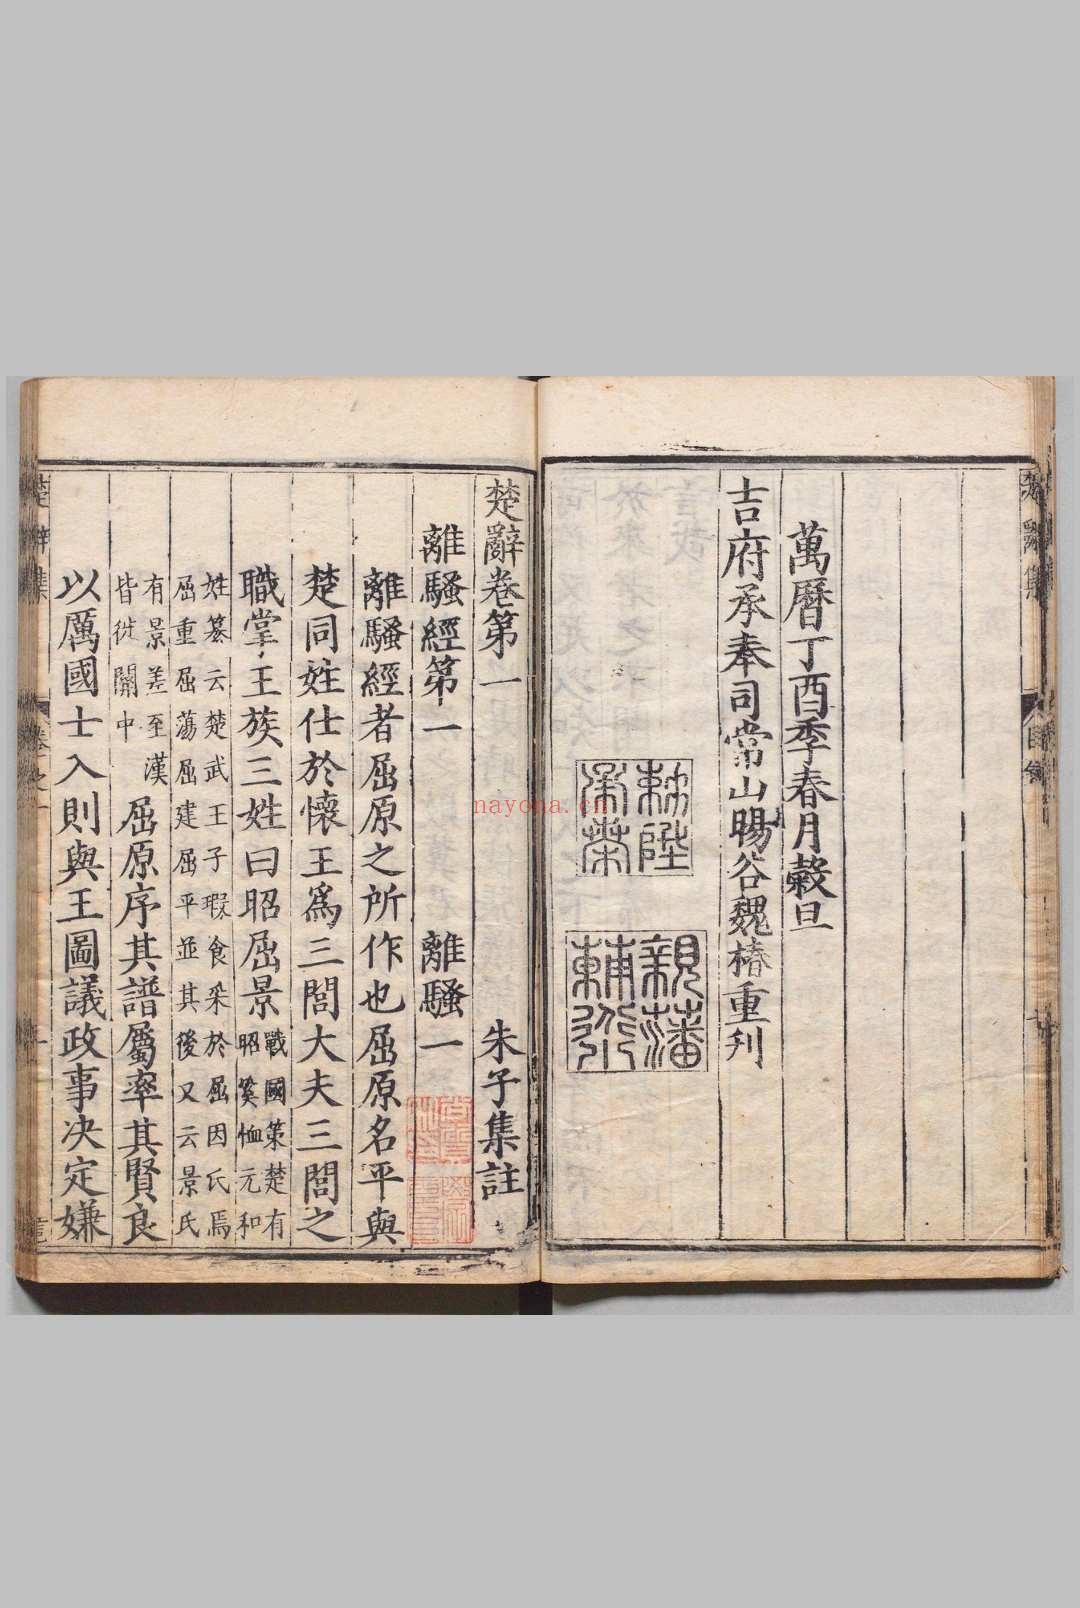 萬曆丁酉季春月穀旦
吉府承奉司常山暘谷魏椿重刋
勑陞
承奉
親藩
輔
楚辭卷第一
朱子集註
離騷經第一
離騷一
離騷經者屈原之所作也屈原名平與
楚同姓仕於懷王爲三閭大夫三閭之
職掌王族三姓曰昭屈景
戰國策楚有
昭奚恤元和
姓纂云楚武王子瑕食采於屈因氏焉
屈重屈蕩屈建屈平並其後又云景氏
有景差至漢
皆徙關中
屈原序其譜屬率其賢良
以厲國士入則與王圖議政事决定嫌
楚辭集
卷之一
nayona.cn